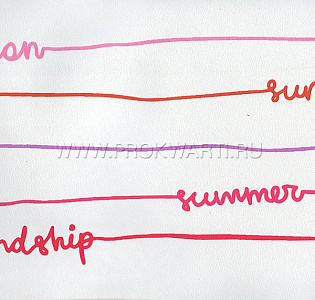 an
sun
WWW.PROKWARTI.RU
summer
ndship